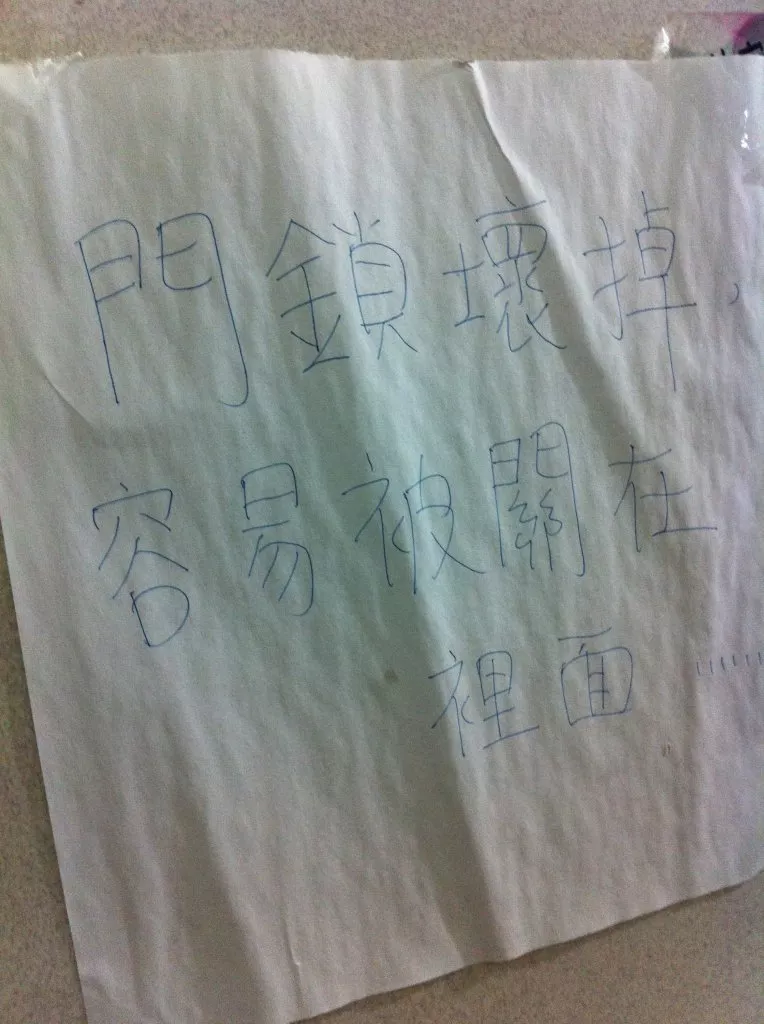 門鎖壞掉，
容易被關在
裡面......